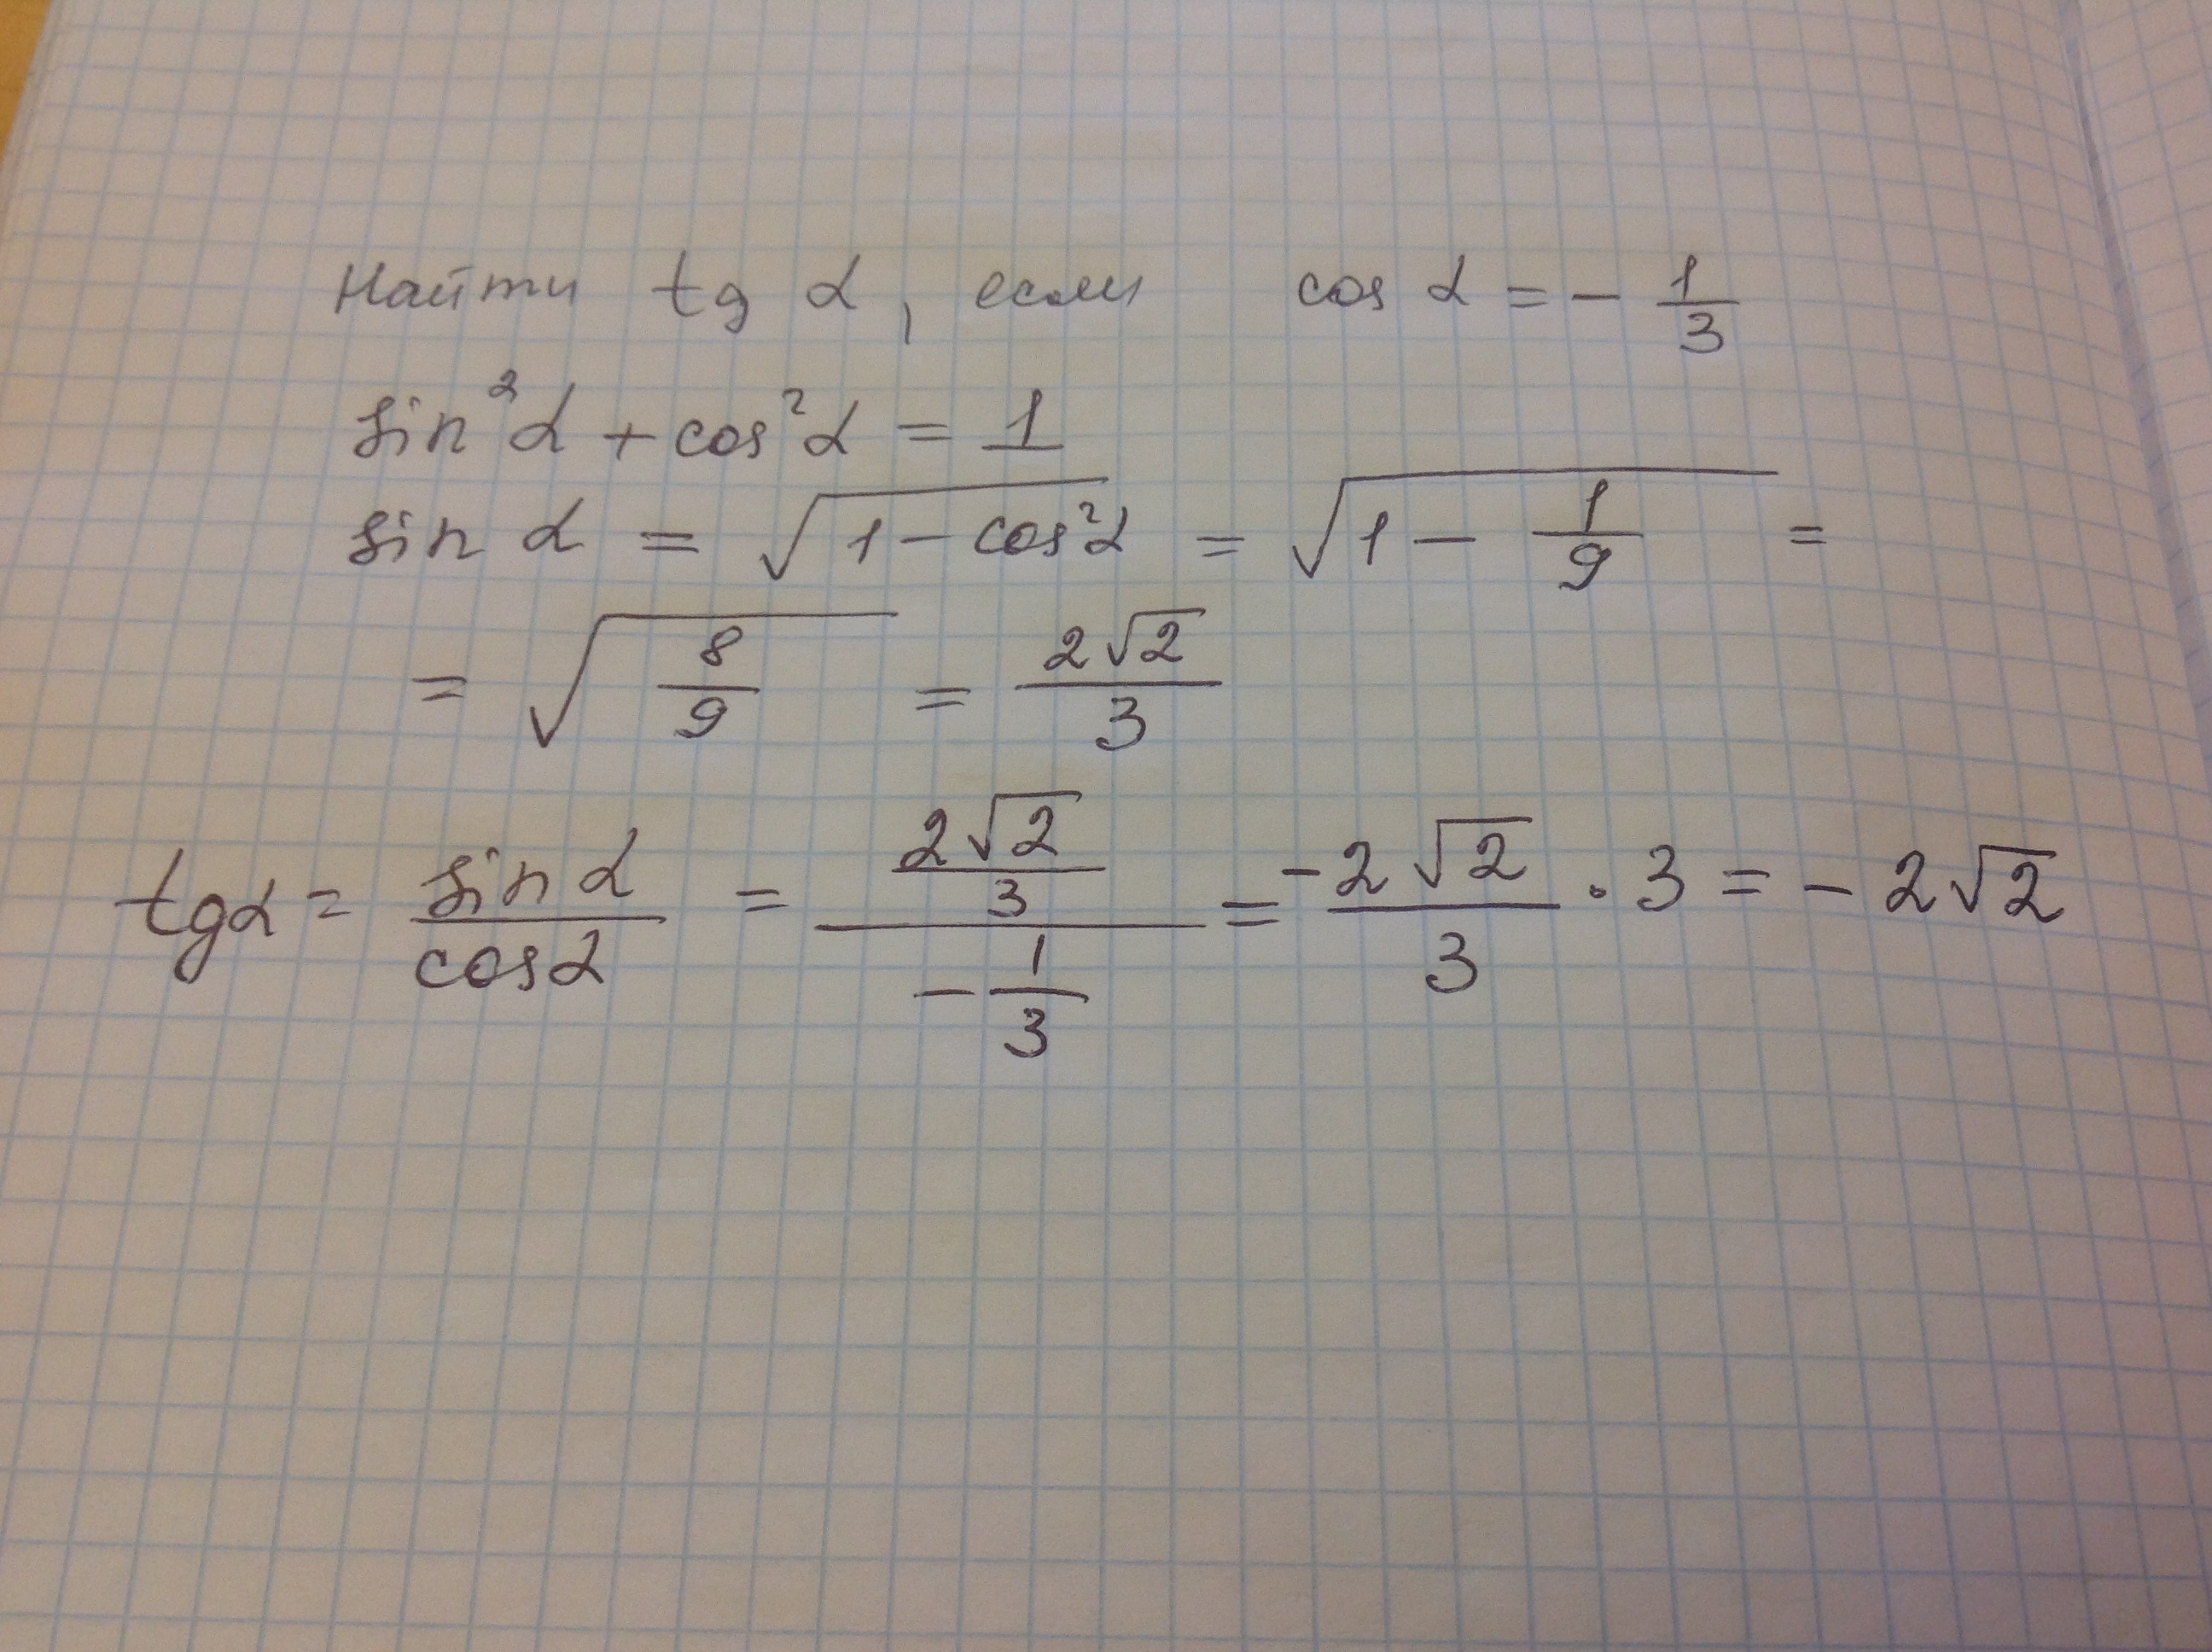 Найти tg α, если cos α = - 1/3
sin²α + cos²α = 1
sin α = √(1 - cos²α) = √(1 - 1/9) =
= √(8/9) = 2√2/3
tgα = sin α/cos α = (2√2/3)/(-1/3) = -2√2/3 · 3 = - 2√2